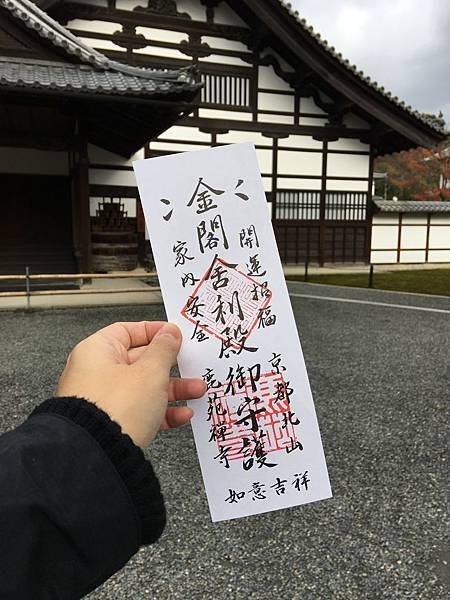 開運招福
金閣舍利殿御守護
家内安全
京都北山
鹿苑禅寺
如意吉祥